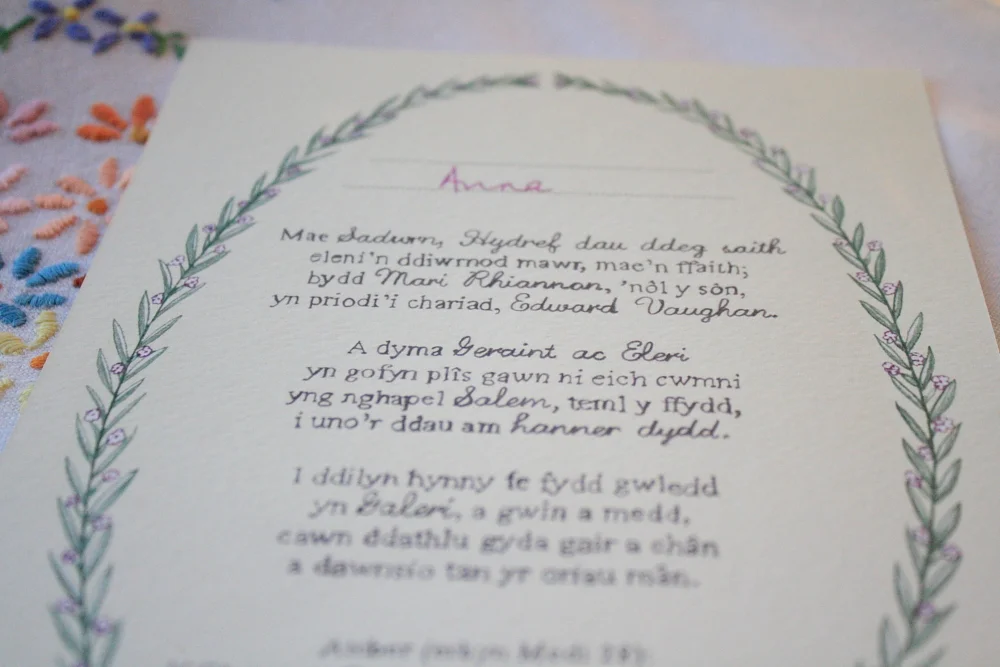 Anna
Mae Sadwrn, Hydref dau ddeg saith
eleni'n ddiwrnod mawr, mae'n ffaith;
bydd Mari Rhiannon, 'nôl y sôn,
yn priodi'i chariad, Edward Vaughan.
A dyma Geraint ac Eleri
yn gofyn plîs gawn ni eich cwmni
yng nghapel Salem, teml y ffydd,
i uno'r ddau am hanner dydd.
I ddilyn hynny fe fydd gwledd
yn Galeri, a gwin a medd,
cawn ddathlu gyda gair a chân
a dawnsio tan yr oriau mân.